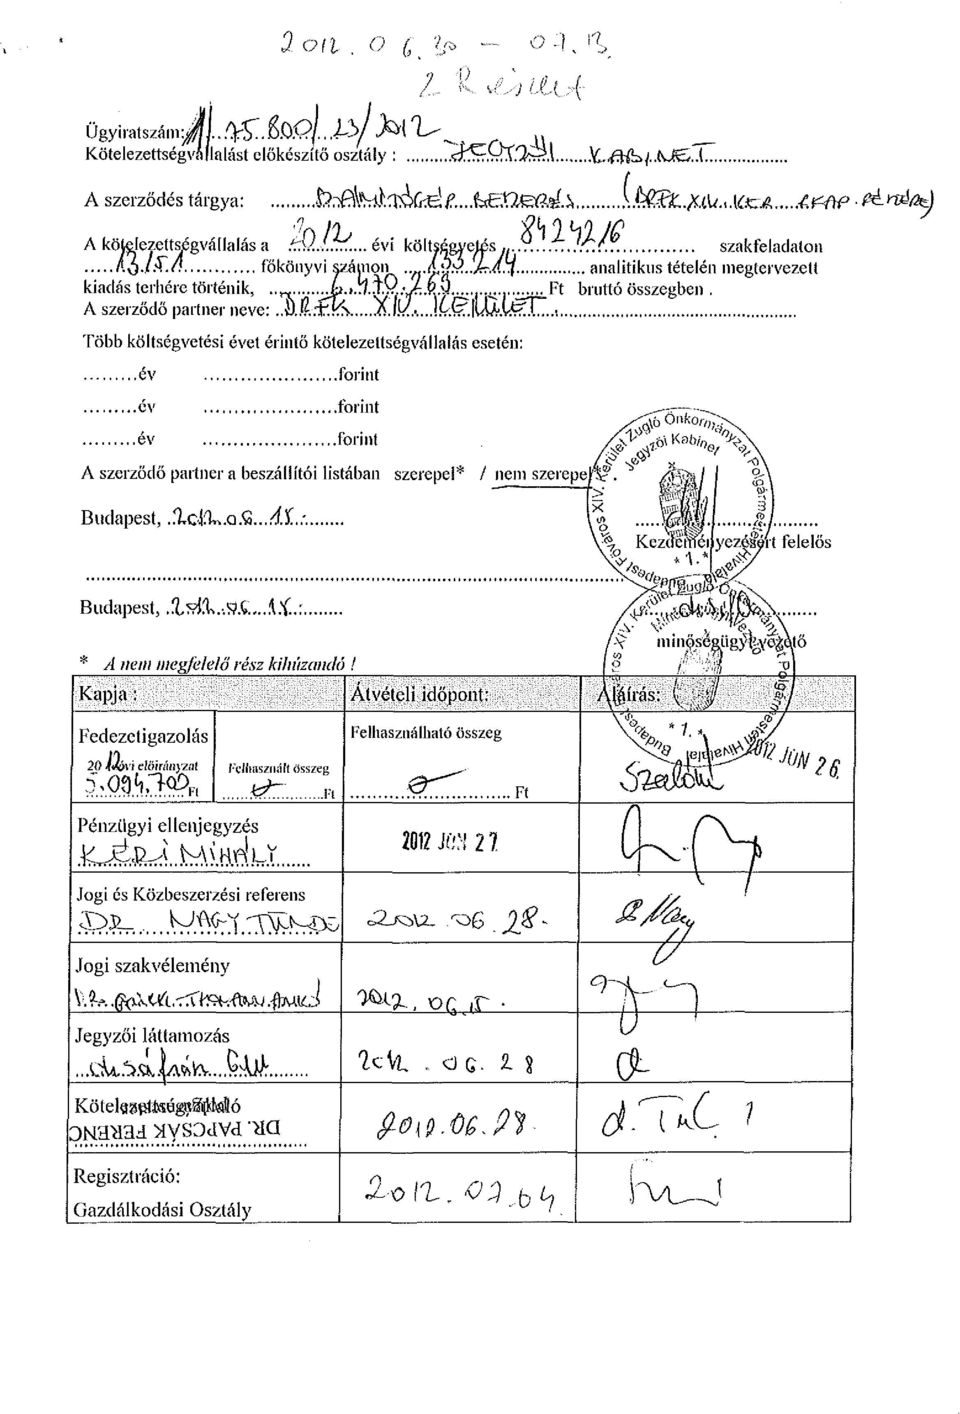 2012. 06. 30 — 07. 13.
2 Részlet
Ügyiratszám: 1/75.800/23/2012
Kötelezettségvállalást előkészítő osztály : JEGYZŐI KABINET
A szerződés tárgya: (BRFK XIV. KER.
A kötelezettségvállalás a 2012 évi költségvetés 842421/6 szakfeladaton
13/5/1 főkönyvi számon analitikus tételén megtervezett
kiadás terhére történik, 6.470.269 Ft bruttó összegben .
A szerződő partner neve: BRFK XIV. KERÜLET
Több költségvetési évet érintő kötelezettségvállalás esetén:
.........év ......................forint
.........év ......................forint
.........év ......................forint
A szerződő partner a beszállítói listában szerepel* / nem szerepel*.
Budapest Főváros XIV. Kerület Zugló Önkormányzat Polgármesteri Hivatala
Jegyzői Kabinet
* 1. *
Budapest, 2012.06.15.
Kezdeményezésért felelős
Budapest, 2012.06.15.
minőségügyi vezető
Budapest Főváros XIV. Kerület Zugló Önkormányzat Polgármesteri Hivatala
* 1. *
* A nem megfelelő rész kihúzandó !
Kapja : Átvételi időpont: Aláírás:
Fedezetigazolás Felhasználható összeg
2012 évi előirányzat Felhasznált összeg
5.094.700 Ft 0 Ft 0 Ft
2012 JÚN 26.
Pénzügyi ellenjegyzés
KÉRI MIHÁLY 2012 JÚN 27.
Jogi és Közbeszerzési referens
DR. NAGY TÜNDE 2012.06.28. Nagy
Jogi szakvélemény
2012. 06.15.
Jegyzői láttamozás
2012.06.28
Kötelezettségvállaló
DR. PAPCSÁK FERENC 2012.06.28.
Regisztráció:
Gazdálkodási Osztály 2012.07.04.